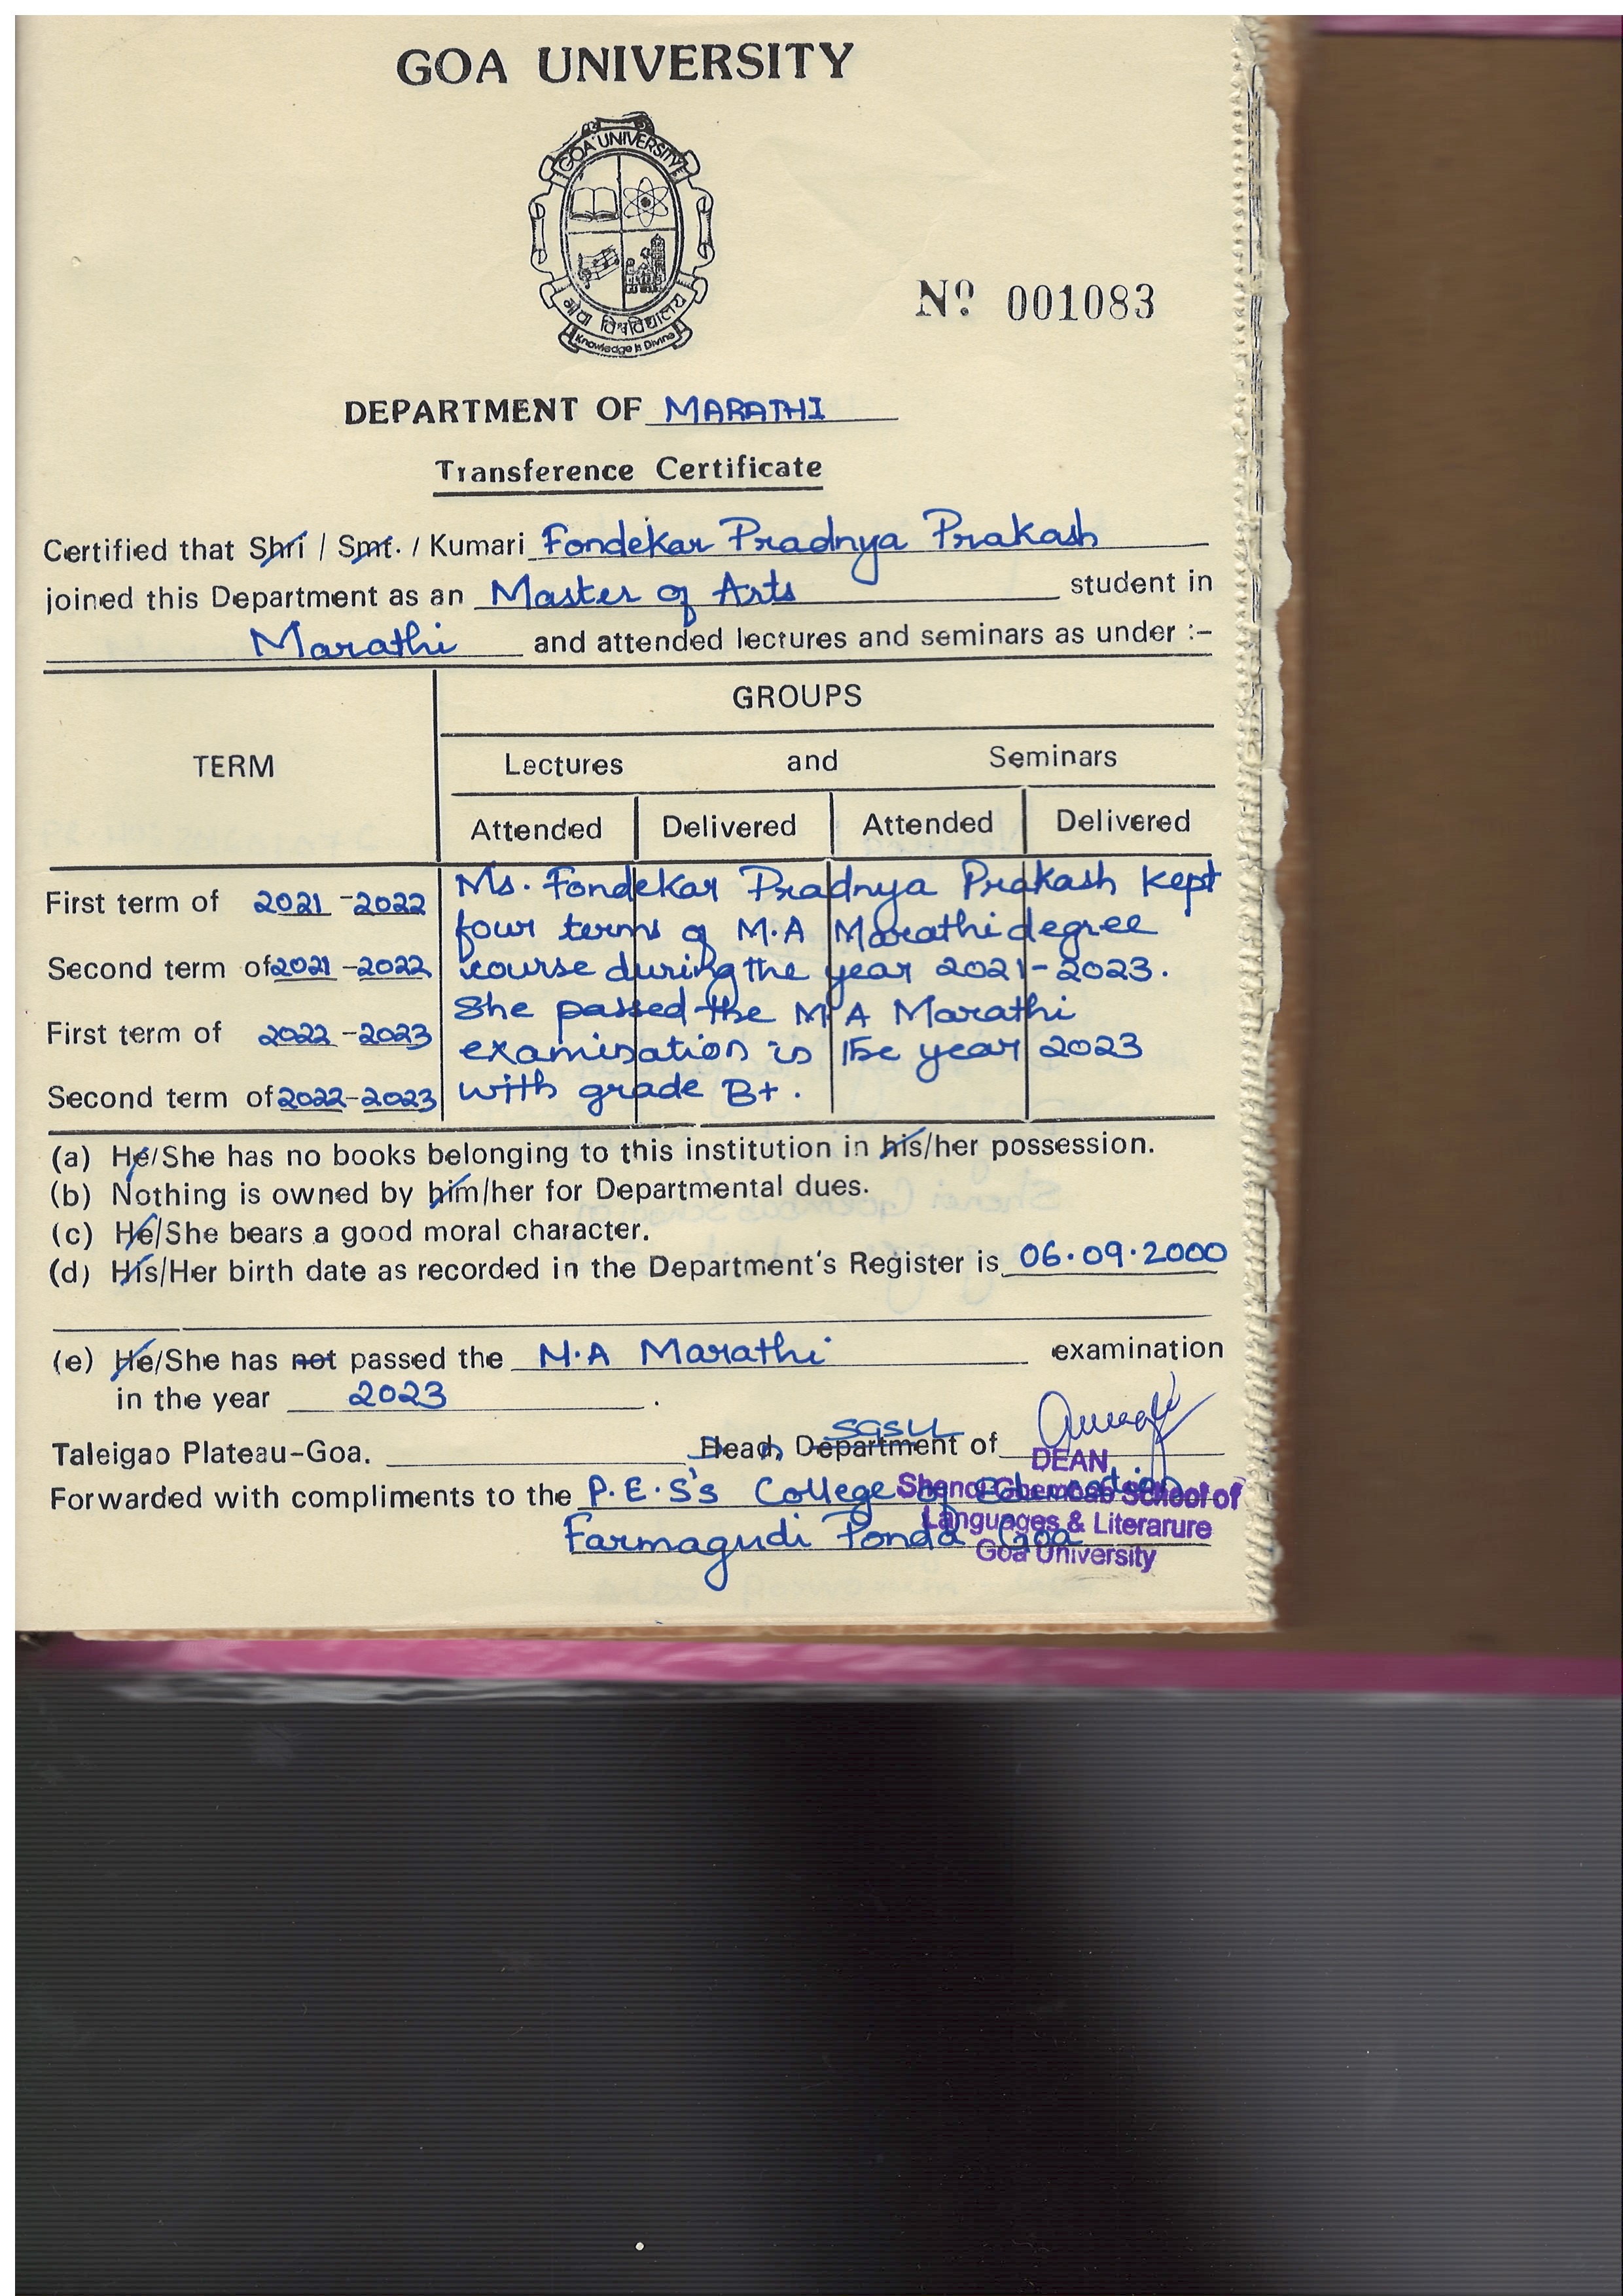 GOA UNIVERSITY
GOA UNIVERSITY
गोंवा विश्वविद्यालय
Knowledge is Divine
Nº 001083
DEPARTMENT OF MARATHI
Transference Certificate
Certified that Shri / Smt. / Kumari Fondekar Pradnya Prakash
joined this Department as an Master of Arts student in
Marathi and attended lectures and seminars as under :-
GROUPS
TERM
Lectures and Seminars
Attended Delivered Attended Delivered
First term of 2021 - 2022
Second term of 2021 - 2022
First term of 2022 - 2023
Second term of 2022 - 2023
Ms. Fondekar Pradnya Prakash kept
four terms of M.A Marathi degree
course during the year 2021-2023.
She passed the M A Marathi
examination is year 2023
with grade B+.
(a) He/She has no books belonging to this institution in his/her possession.
(b) Nothing is owned by him/her for Departmental dues.
(c) He/She bears a good moral character.
(d) His/Her birth date as recorded in the Department's Register is 06.09.2000
(e) He/She has not passed the M.A Marathi examination
in the year 2023.
SGSLL
Taleigao Plateau-Goa. Head, Department of
DEAN
Forwarded with compliments to the P.E.S's College of Education
Shenoi Goembab School of
Languages & Literarure
Farmagudi Ponda Goa
Goa University